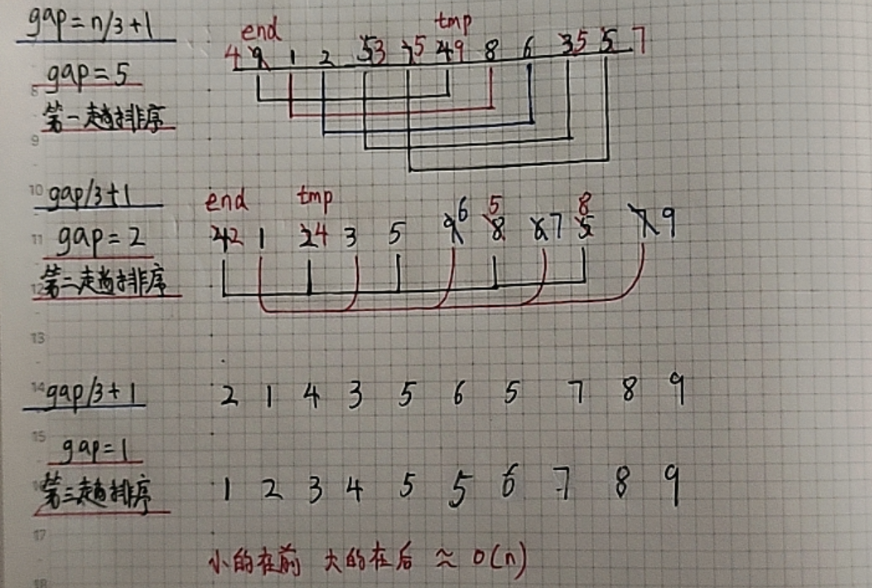 gap=n/3+1
end tmp
4 9 1 2 5 3 7 5 4 9 8 6 3 5 5 7
gap=5
8
第一趟排序
9
10 gap/3+1 end tmp
6 5 8
11 gap=2 4 2 1 2 4 3 5 9 8 6 7 5 7 9
12 第二趟排序
13
14 gap/3+1 2 1 4 3 5 6 5 7 8 9
15
gap=1
第三趟排序 1 2 3 4 5 5 6 7 8 9
17
小的在前 大的在后 ≈ O(n)
18